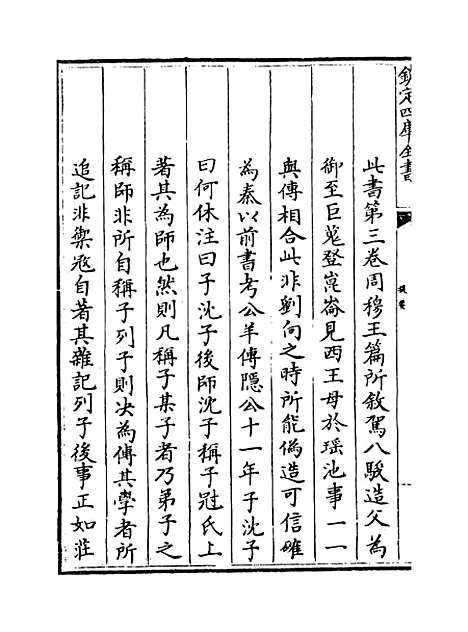 欽定四庫全書
提要
此書第三卷周穆王篇所敘駕八駿造父為
御至巨蒐登崑崙見西王母於瑶池事一一
與傳相合此非劉向之時所能偽造可信確
為秦以前書考公羊傳隱公十一年子沈子
曰何休注曰子沈子後師沈子稱子冠氏上
著其為師也然則凡稱子某子者乃弟子之
稱師非所自稱子列子則决為傳其學者所
追記非禦寇自著其雜記列子後事正如莊